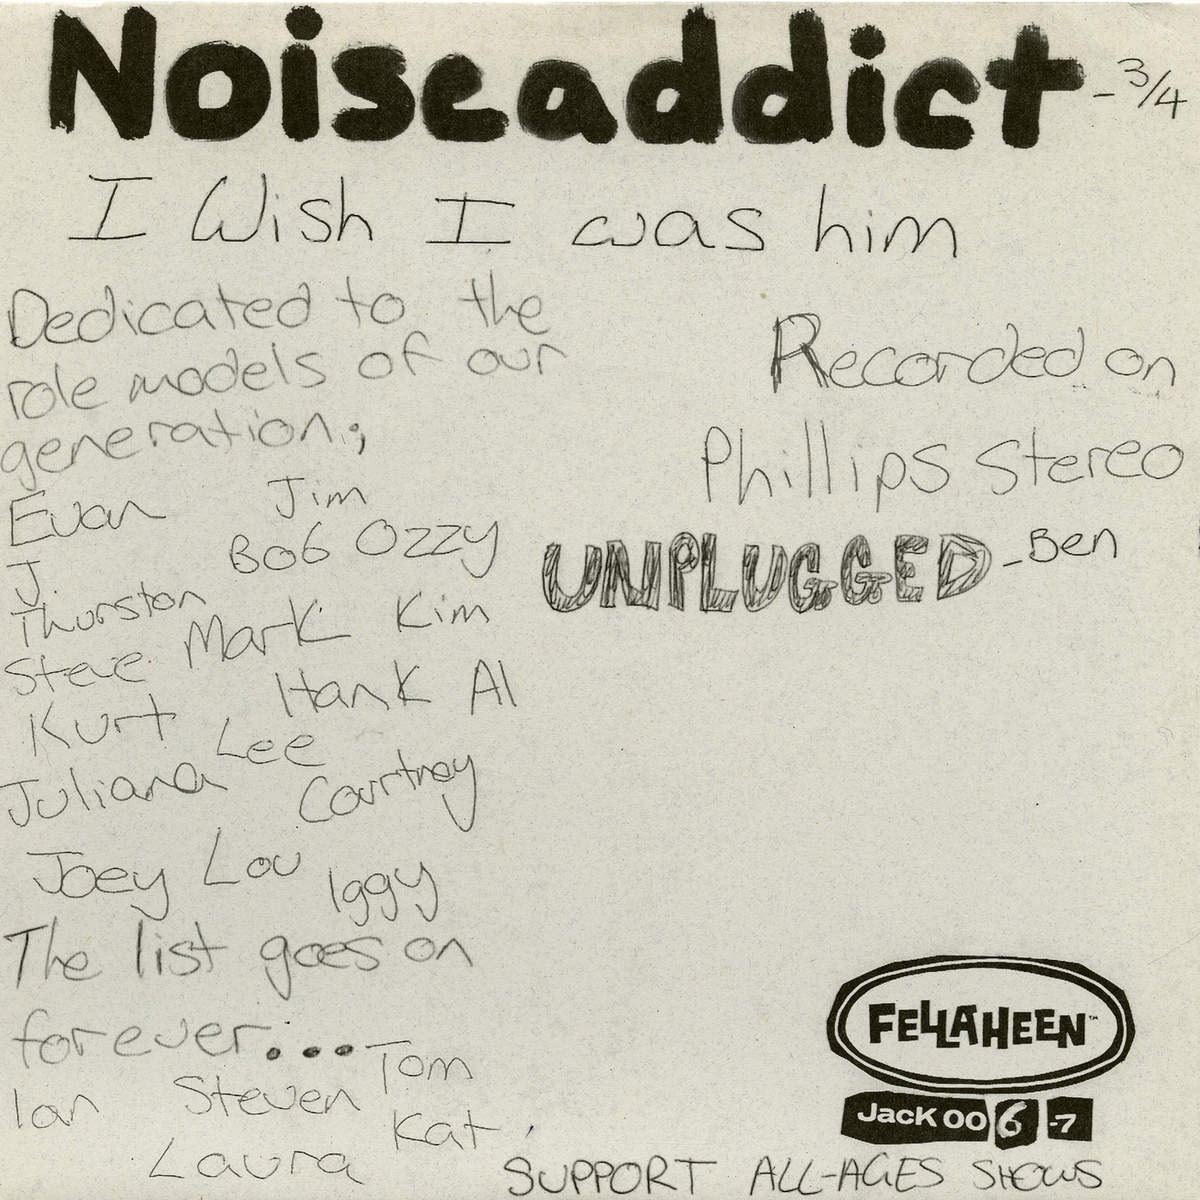 Noiseaddict - 3/4
I Wish I was him
Dedicated to the
role models of our
generation;
Evan Jim
J. Bob Ozzy
Thurston Mark Kim
Steve Hank Al
Kurt Lee
Juliana Courtney
Joey Lou Iggy
The list goes on
forever... Tom
Ian Steven Kat
Laura
Recorded on
Phillips Stereo
UNPLUGGED - Ben
FELLAHEEN™
Jack 006-7
SUPPORT ALL-AGES SHOWS